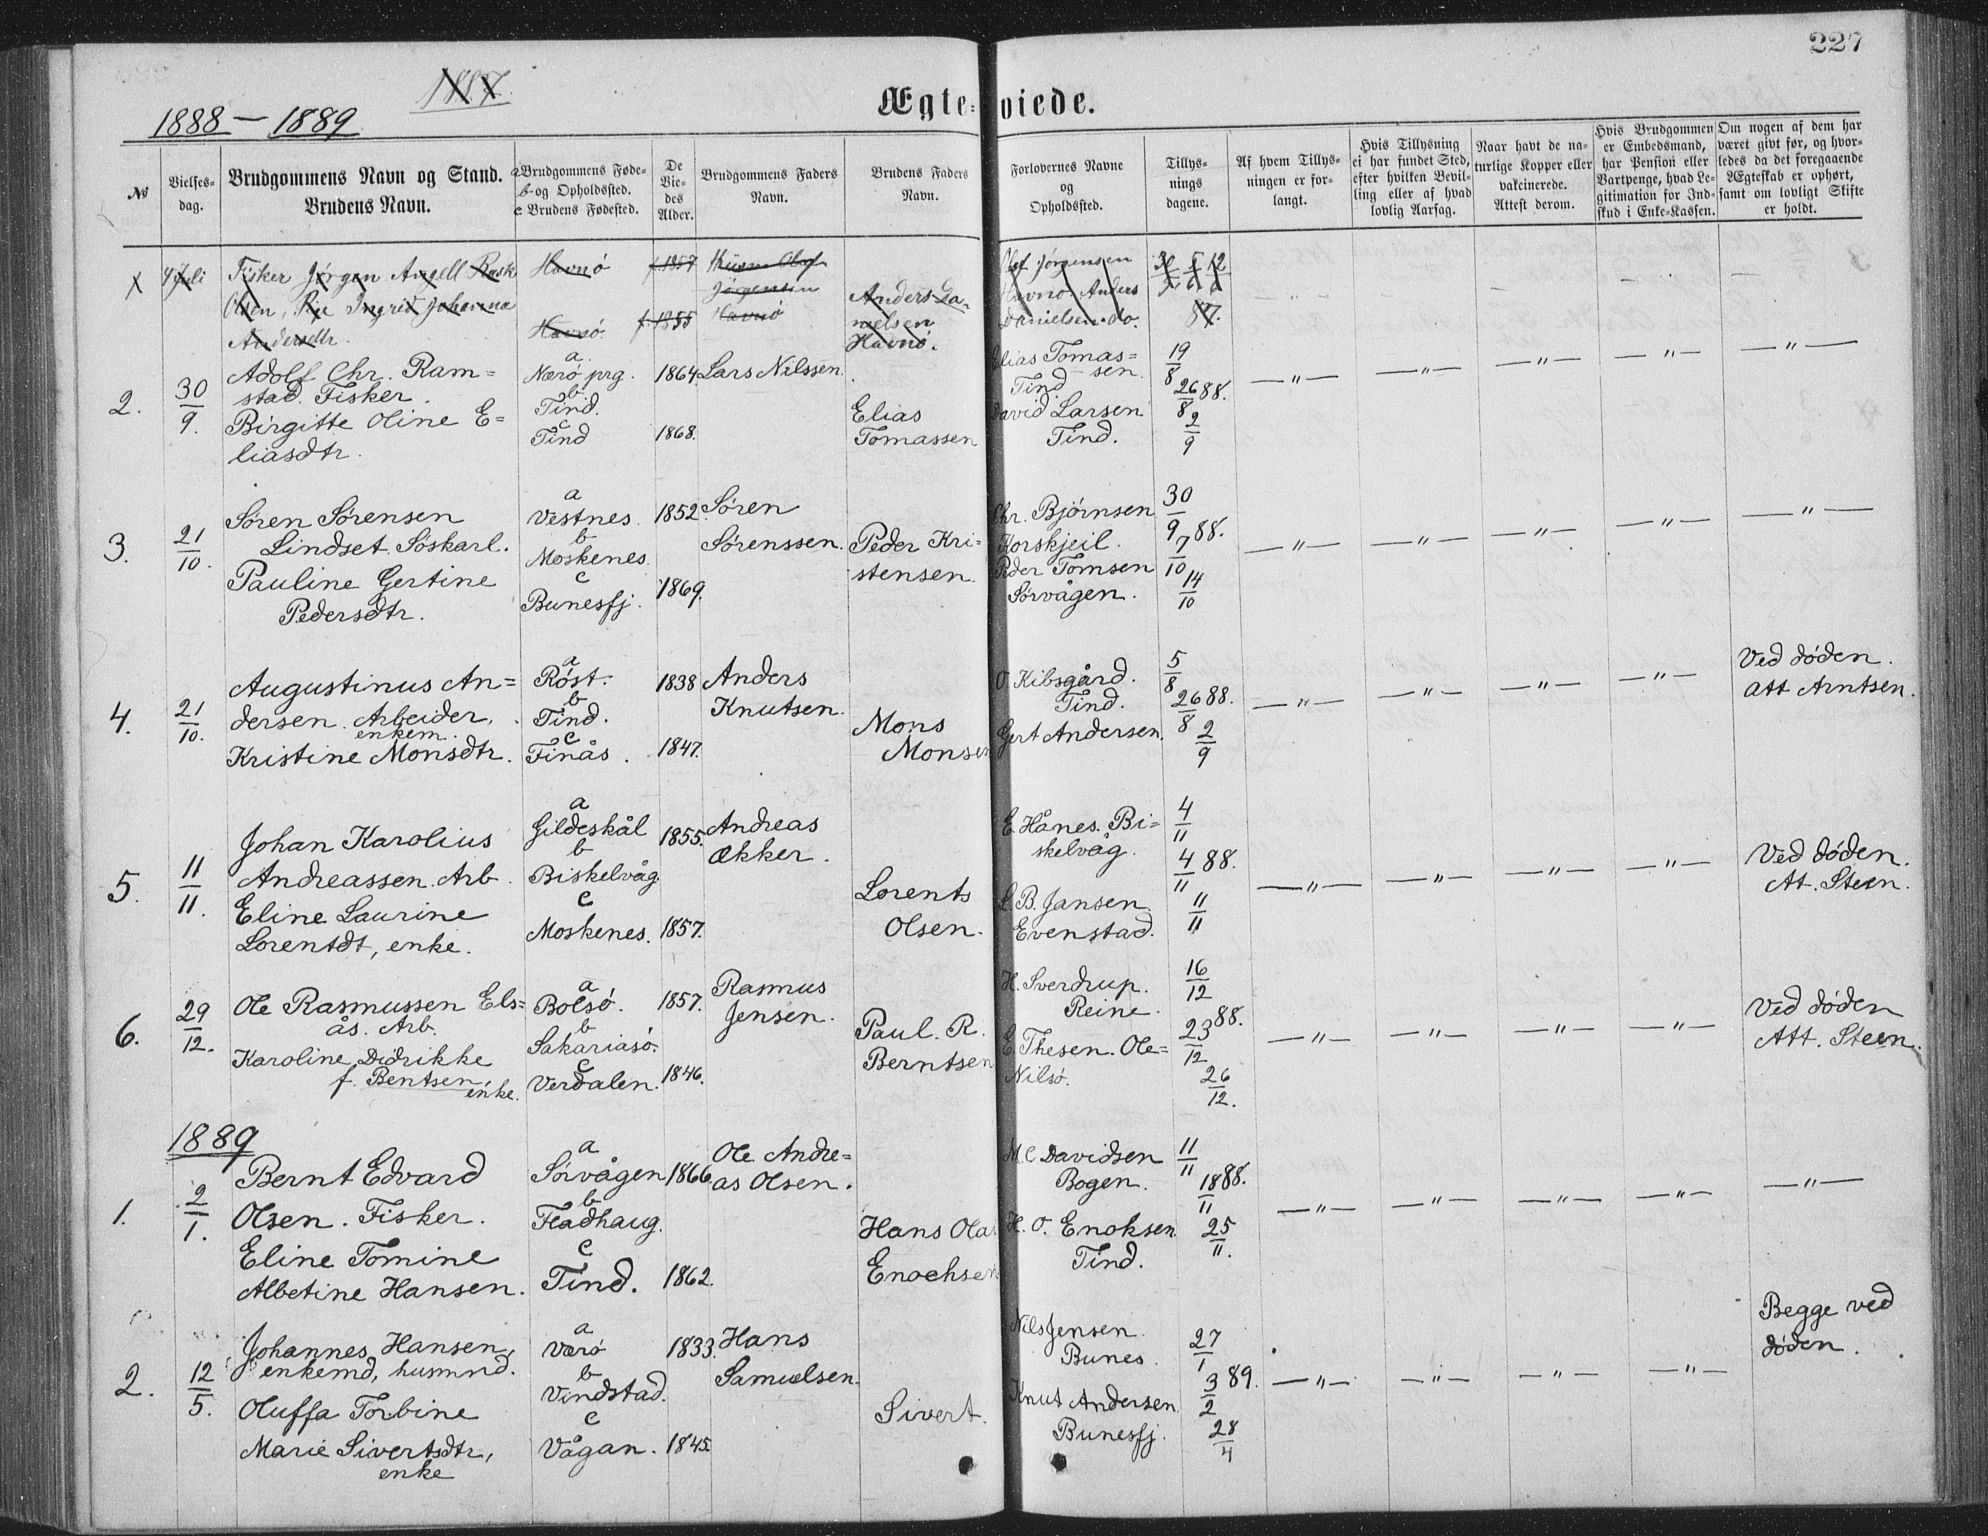 227
1887.
1888 — 1889
Ægteviede.
№
Vielses-
dag.
Brudgommens Navn og Stand.
Brudens Navn.
a Brudgommens Føde-
b- og Opholdssted.
c Brudens Fødested.
De
Vie-
des
Alder.
Brudgommens Faders
Navn.
Brudens Faders
Navn.
Forlovernes Navne
og
Opholdssted.
Tillys-
nings
dagene.
Af hvem Tillys-
ningen er for-
langt.
Hvis Tillysning
ei har fundet Sted,
efter hvilken Bevil-
ling eller af hvad
lovlig Aarsag.
Naar havt de na-
turlige Kopper eller
vakcinerede.
Attest derom.
Hvis Brudgommen
er Embedsmand,
har Pension eller
Vartpenge, hvad Le-
gitimation for Ind-
skud i Enke-Kassen.
Om nogen af dem har
været givt før, og hvor-
ledes da det foregaaende
Ægteskab er ophørt,
samt om lovligt Skifte
er holdt.
Fisker Jørgen Angell Rask
Olsen, Pie Ingrid Johanna
Andersdtr.
Havnö
Havnö.
f. 1857
f. 1855
Husm. Olof
Jørgensen
Havnö
Anders Da-
nielsen
Havnö.
Olof Jørgensen
Havnö. Anders
Danielsen. do.
87.
2.
30/9.
Adolf Chr. Ram=
stad. Fisker.
Birgitte Oline E=
liasdtr.
a
Nærö prg.
b
Tind.
c
Tind
1864
1868.
Lars Nilssen.
Elias
Tomassen
Elias Tomas=
sen.
Tind
David Larsen
Tind.
19/8
26/8 88.
2/9
—"— —"— —"— —"— —"—
3.
21/10.
Sören Sörensen
Lindset. Söskarl.
Pauline Gertine
Pedersdtr.
a
Vestnes.
b
Moskenes.
c
Bunesfj.
1852.
1869.
Sören
Sörenssen.
Peder Kri-
stensen.
Chr. Bjørnsen
Korskjeil.
Peder Tomsen
Sörvågen.
30/9 88.
7/10
14/10
—"— —"— —"— —"— —"—
4.
21/10.
Augustinus An=
dersen. Arbeider,
enkem.
Kristine Monsdtr.
a
Röst.
b
Tind.
c
Finås.
1838
1847.
Anders
Knutsen.
Mons
Monsen
O. Kibsgård.
Tind.
Gert Andersen.
5/8
26/8 88.
2/9
—"— —"— —"— —"—
Ved döden.
att Arntsen.
5.
11/11.
Johan Karolius
Andreassen. Arb.
Eline Laurine
Lorentdt, enke.
a
Gildeskål
b
Biskelvåg
c
Moskenes.
1855.
1857.
Andreas
Økker.
Lorents
Olsen.
E. Hånes. Bi=
skelvåg.
L. B. Jansen.
Evenstad.
4/11
4/11 88.
11/11
—"— —"— —"— —"—
Ved döden.
At. Steen.
6.
29/12.
Ole Rasmussen Els=
ås. Arb.
Karoline Didrikke
f. Bentsen,
enke.
a
Bolsö.
b
Sakariasö.
c
Verdalen.
1857.
1846.
Rasmus
Jensen.
Paul. R.
Berntsen
H. Sverdrup.
Reine.
E. Thesen. Ole=
Nilsö.
16/12
23/12 88.
26/12.
—"— —"— —"— —"—
Ved döden
Att. Steen.
1889
1.
2/1.
Bernt Edvard
Olsen. Fisker.
Eline Tomine
Albetine Hansen.
a
Sörvågen
b
Fladhaug.
c
Tind.
1866.
1862.
Ole Andre=
as Olsen.
Hans Ola
Enochsen
M. C Davidsen
Bogen.
H. O. Enoksen
Tind.
11/11
18/11 88.
25/11.
—"— —"— —"— —"— —"—
2.
12/5.
Johannes Hansen,
enkemd, husmnd.
Oluffa Torbine
Marie Sivertsdtr,
enke
a
Værö
b
Vindstad.
c
Vågan.
1833.
1845.
Hans
Samuelsen.
Sivert.
Nils Jensen.
Bunes.
Knut Andersen
Bunesfj.
27/1
3/2 89.
28/4
—"— —"— —"— —"—
Begge ved
döden.